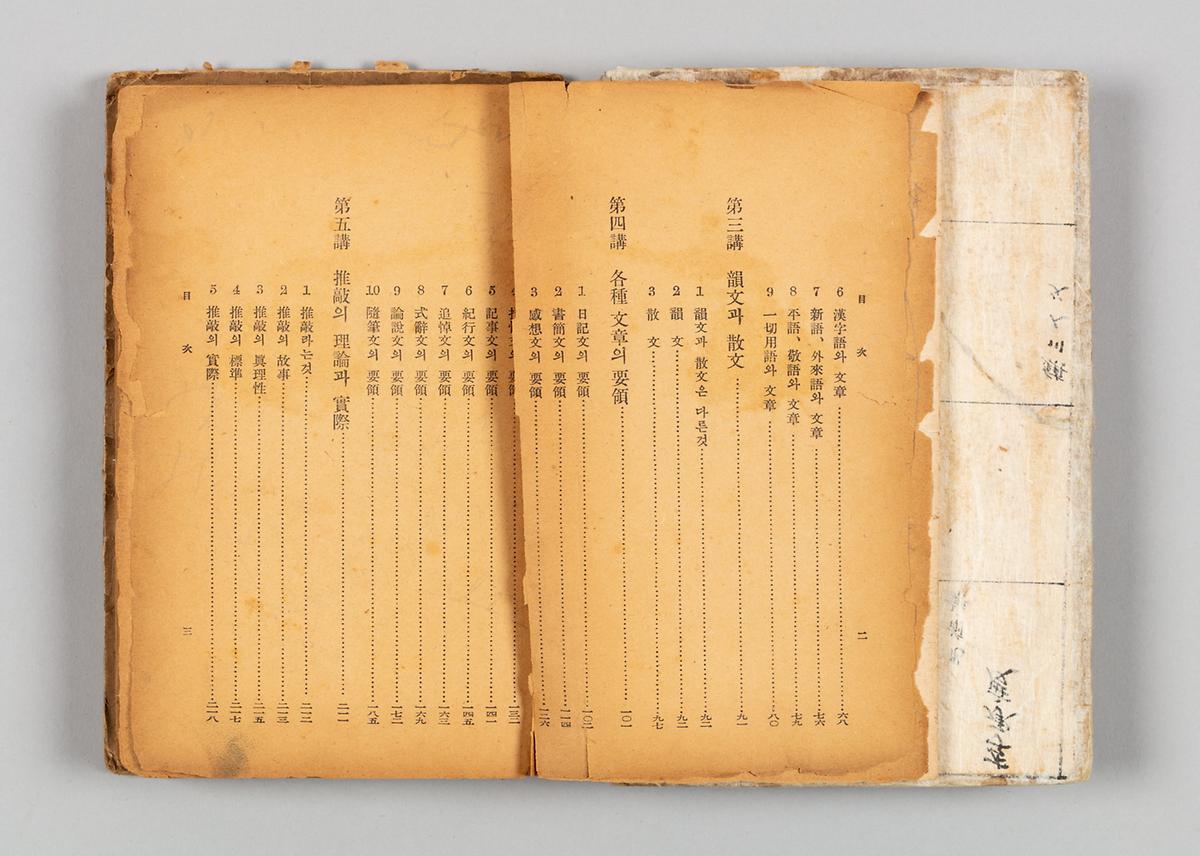 目次 二
6 漢字語와 文章 六八
7 新語、外來語와 文章 七六
8 平語、敬語와 文章 七九
9 一切用語와 文章 八〇
第三講 韻文과 散文 九一
1 韻文과 散文은 다른것 九二
2 韻 文 九二
3 散 文 九七
第四講 各種 文章의 要領 一〇一
1 日記文의 要領 一〇二
2 書簡文의 要領 一一四
3 感想文의 要領 一二六
4 文의 要領
5 記事文의 要領 一四一
6 紀行文의 要領 一四五
7 追悼文의 要領 一六三
8 式辭文의 要領 一六九
9 論說文의 要領 一七二
10 隨筆文의 要領 一八五
第五講 推敲의 理論과 實際 二一一
1 推敲라는것 二一二
2 推敲의 故事 二一三
3 推敲의 眞理性 二一五
4 推敲의 標準 二一七
5 推敲의 實際 二一八
目次 三